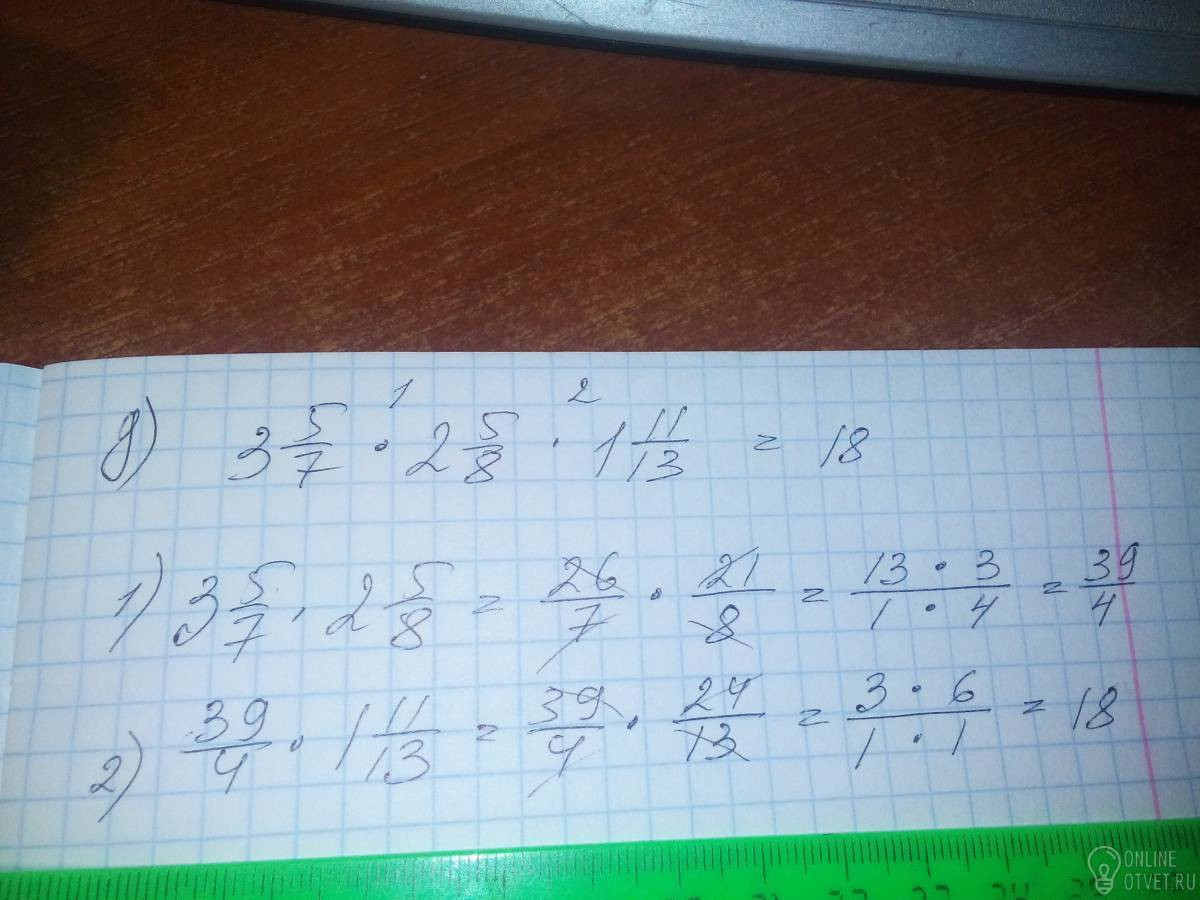 д) 3 5/7 · 2 5/8 · 1 11/13 = 18
1 2
1) 3 5/7 · 2 5/8 = 26/7 · 21/8 = 13 · 3 / 1 · 4 = 39/4
2) 39/4 · 1 11/13 = 39/4 · 24/13 = 3 · 6 / 1 · 1 = 18
ONLINE
OTVET.RU